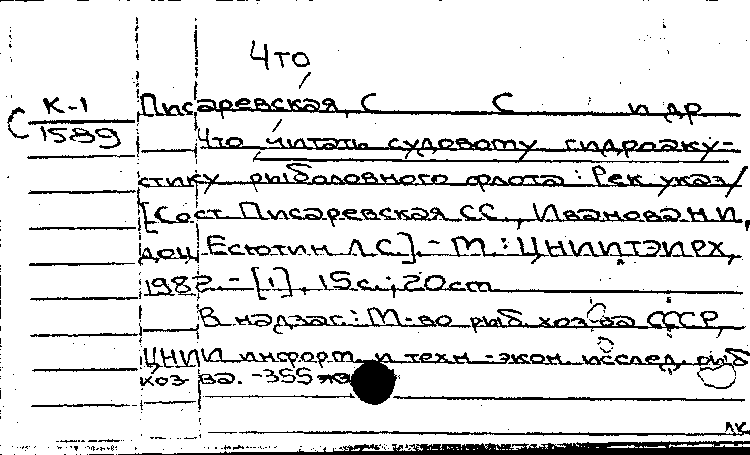 Что
К-1
1589
С
Писаревская, С С и др
Что читать судовому гидроаку-
стику рыболовного флота: Рек указ/
[Сост. Писаревская С.С., Иванова Н.И.,
доц Есютин Л.С.].- М.: ЦНИИТЭИРХ,
1982.- [1], 15с.; 20cm
В надзаг.: М-во рыб. хоз ва СССР,
ЦНИИ информ. и техн -экон. исслед. рыб
хоз ва. -355
ЛК